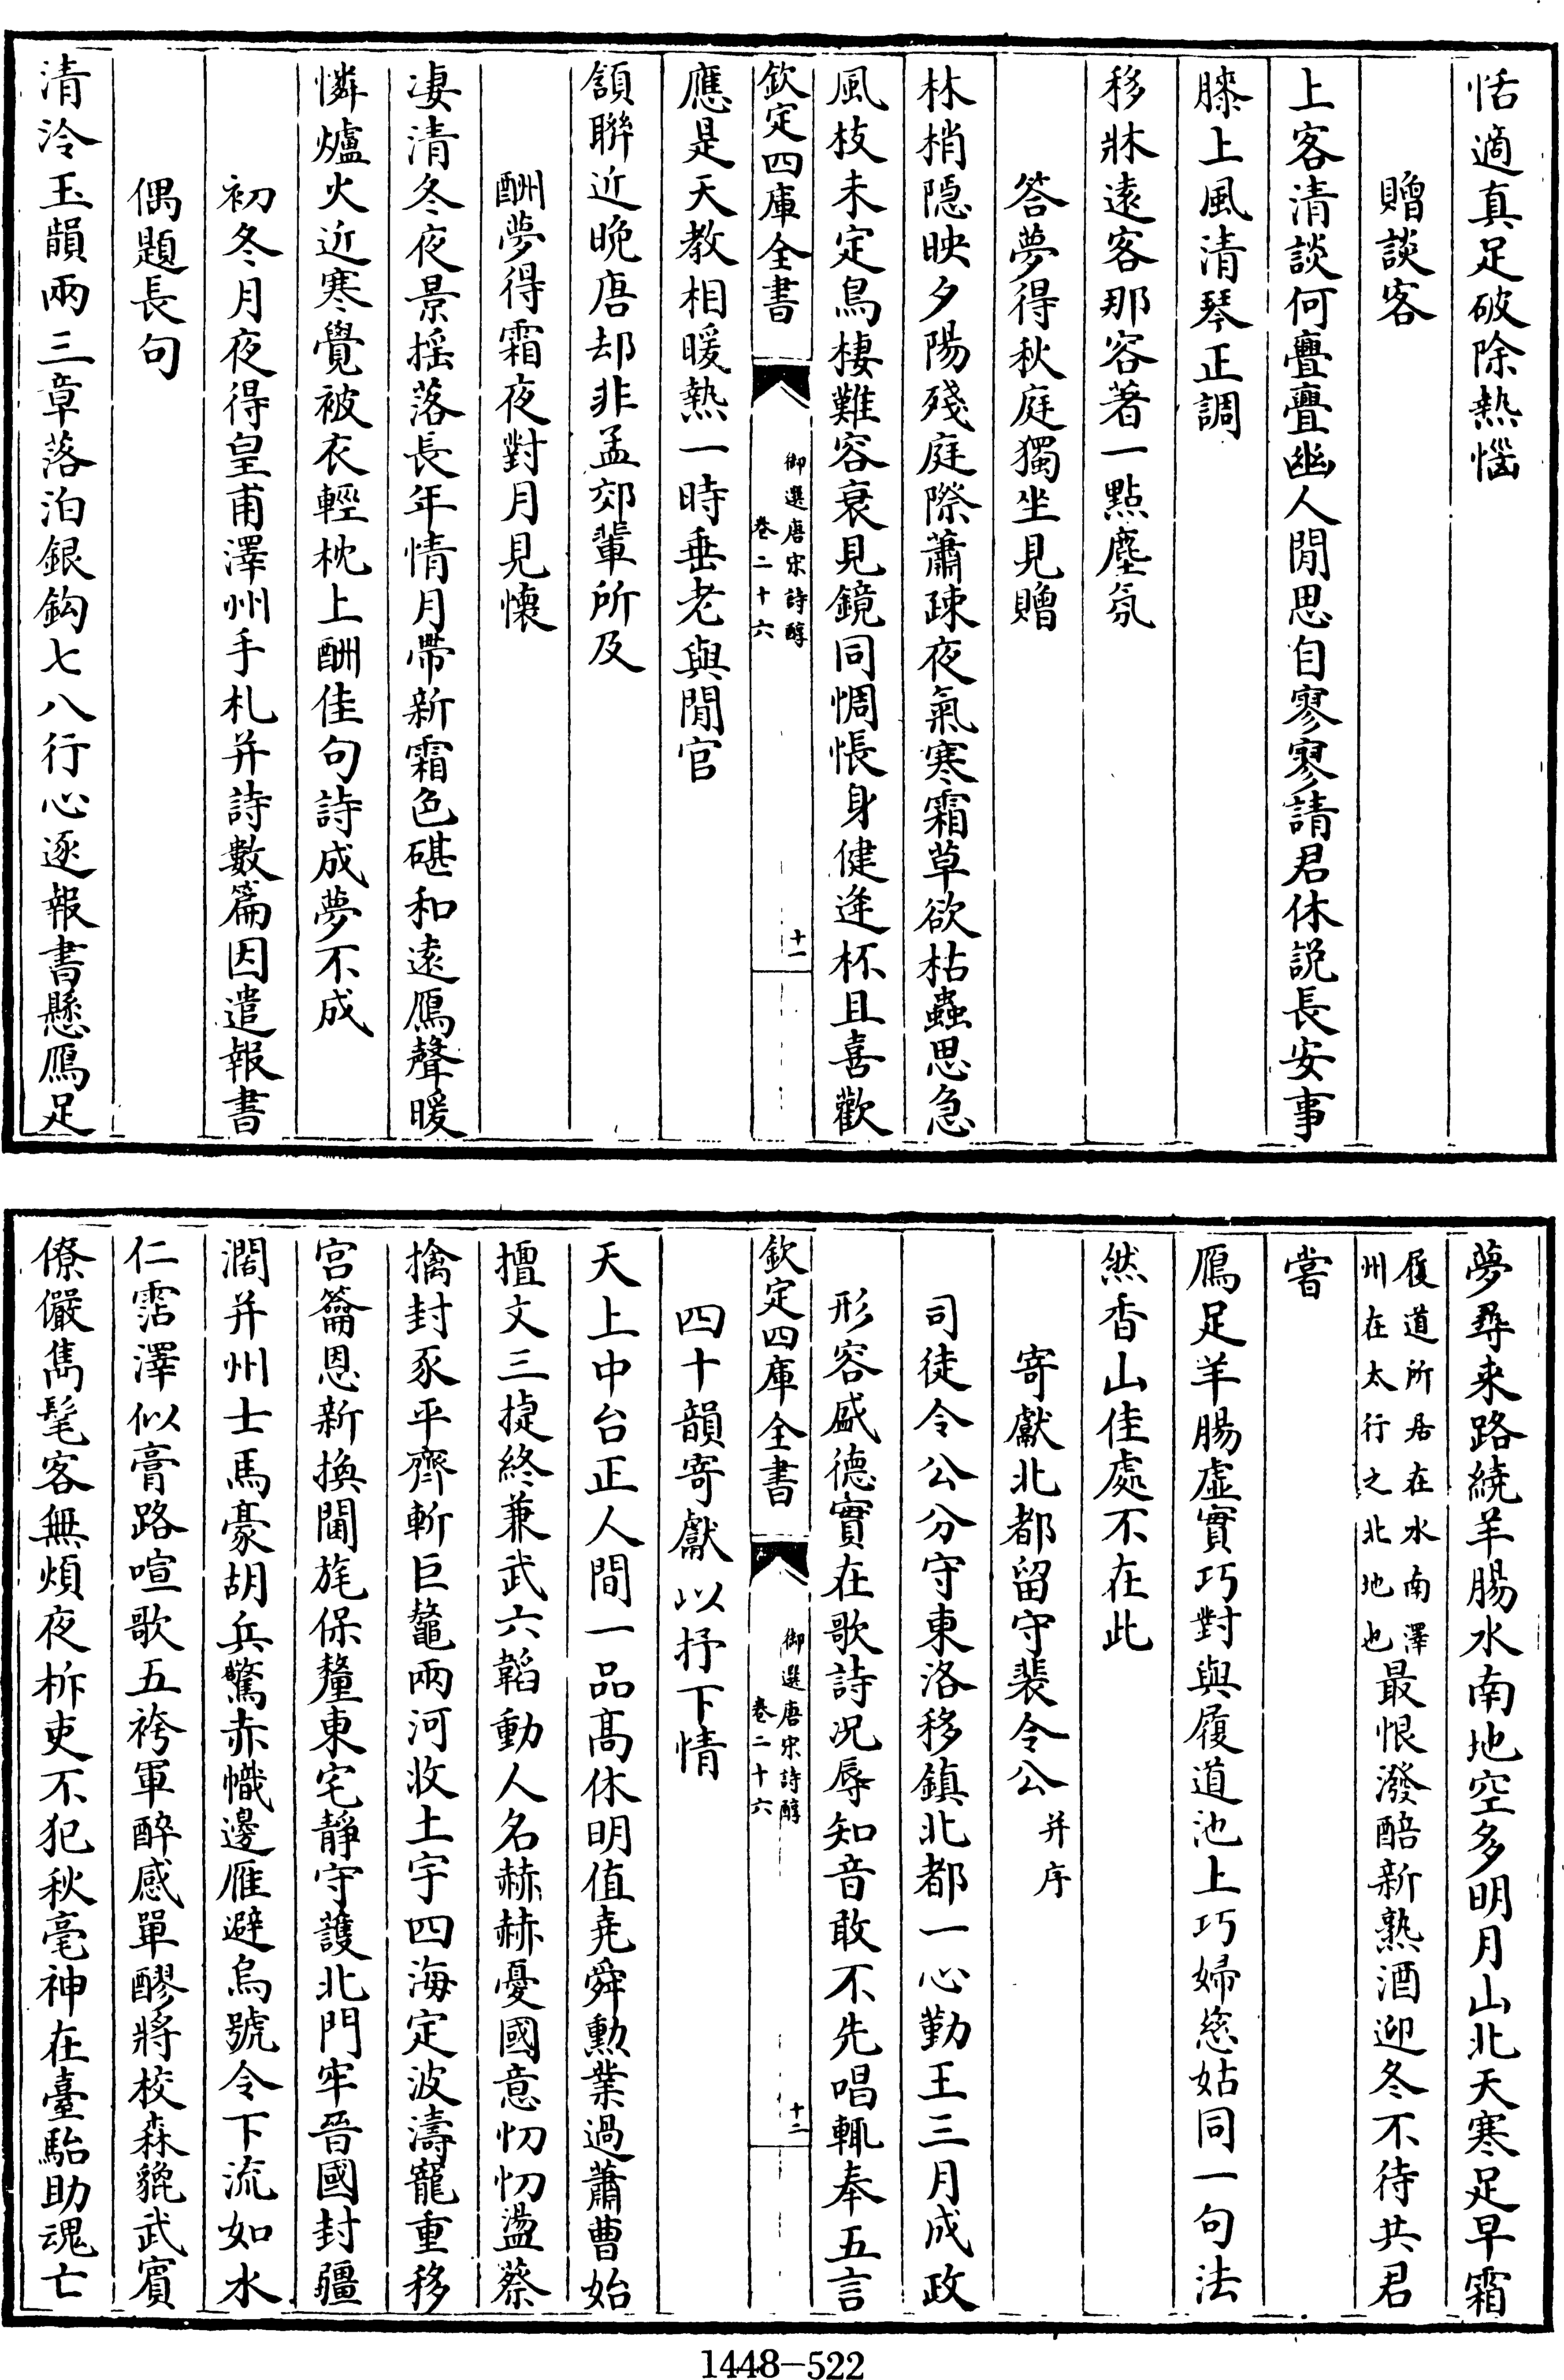 恬適真足破除熱惱
贈談客
上客清談何亹亹幽人閒思自寥寥請君休説長安事
膝上風清琴正調
移牀遠客那容著一點塵氛
答夢得秋庭獨坐見贈
林梢隠映夕陽殘庭際蕭疎夜氣寒霜草欲枯蟲思急
風枝未定鳥棲難容衰見鏡同惆悵身健逢杯且喜歡
欽定四庫全書
御選唐宋詩醇
卷二十六
十一
應是天教相暖熱一時垂老與閒官
頷聨近晚唐却非孟郊輩所及
酬夢得霜夜對月見懷
凄清冬夜景揺落長年情月帶新霜色碪和遠鴈聲暖
憐爐火近寒覺被衣輕枕上酬佳句詩成夢不成
初冬月夜得皇甫澤州手札并詩數篇因遣報書
偶題長句
清泠玉韻兩三章落泊銀鈎七八行心逐報書懸鴈足
夢尋来路繞羊腸水南地空多明月山北天寒足早霜
履道所居在水南澤
州在太行之北地也
最恨潑醅新熟酒迎冬不待共君
嘗
鴈足羊腸虛實巧對與履道池上巧婦慈姑同一句法
然香山佳處不在此
寄獻北都留守裴令公
并序
司徒令公分守東洛移鎮北都一心勤王三月成政
形容盛德實在歌詩况辱知音敢不先唱輒奉五言
欽定四庫全書
御選唐宋詩醇
卷二十六
十二
四十韻寄獻以抒下情
天上中台正人間一品髙休明值堯舜勲業過蕭曹始
擅文三捷終兼武六韜動人名赫赫憂國意忉忉盪蔡
擒封豕平齊斬巨鼇兩河收土宇四海定波濤寵重移
宫籥恩新換閫旄保釐東宅靜守䕶北門牢晉國封疆
濶并州士馬豪胡兵驚赤幟邊雁避烏號令下流如水
仁霑澤似膏路喧歌五袴軍醉感單醪將校森貔武賓
僚儼雋髦客無煩夜柝吏不犯秋毫神在臺駘助魂亡
1448-522